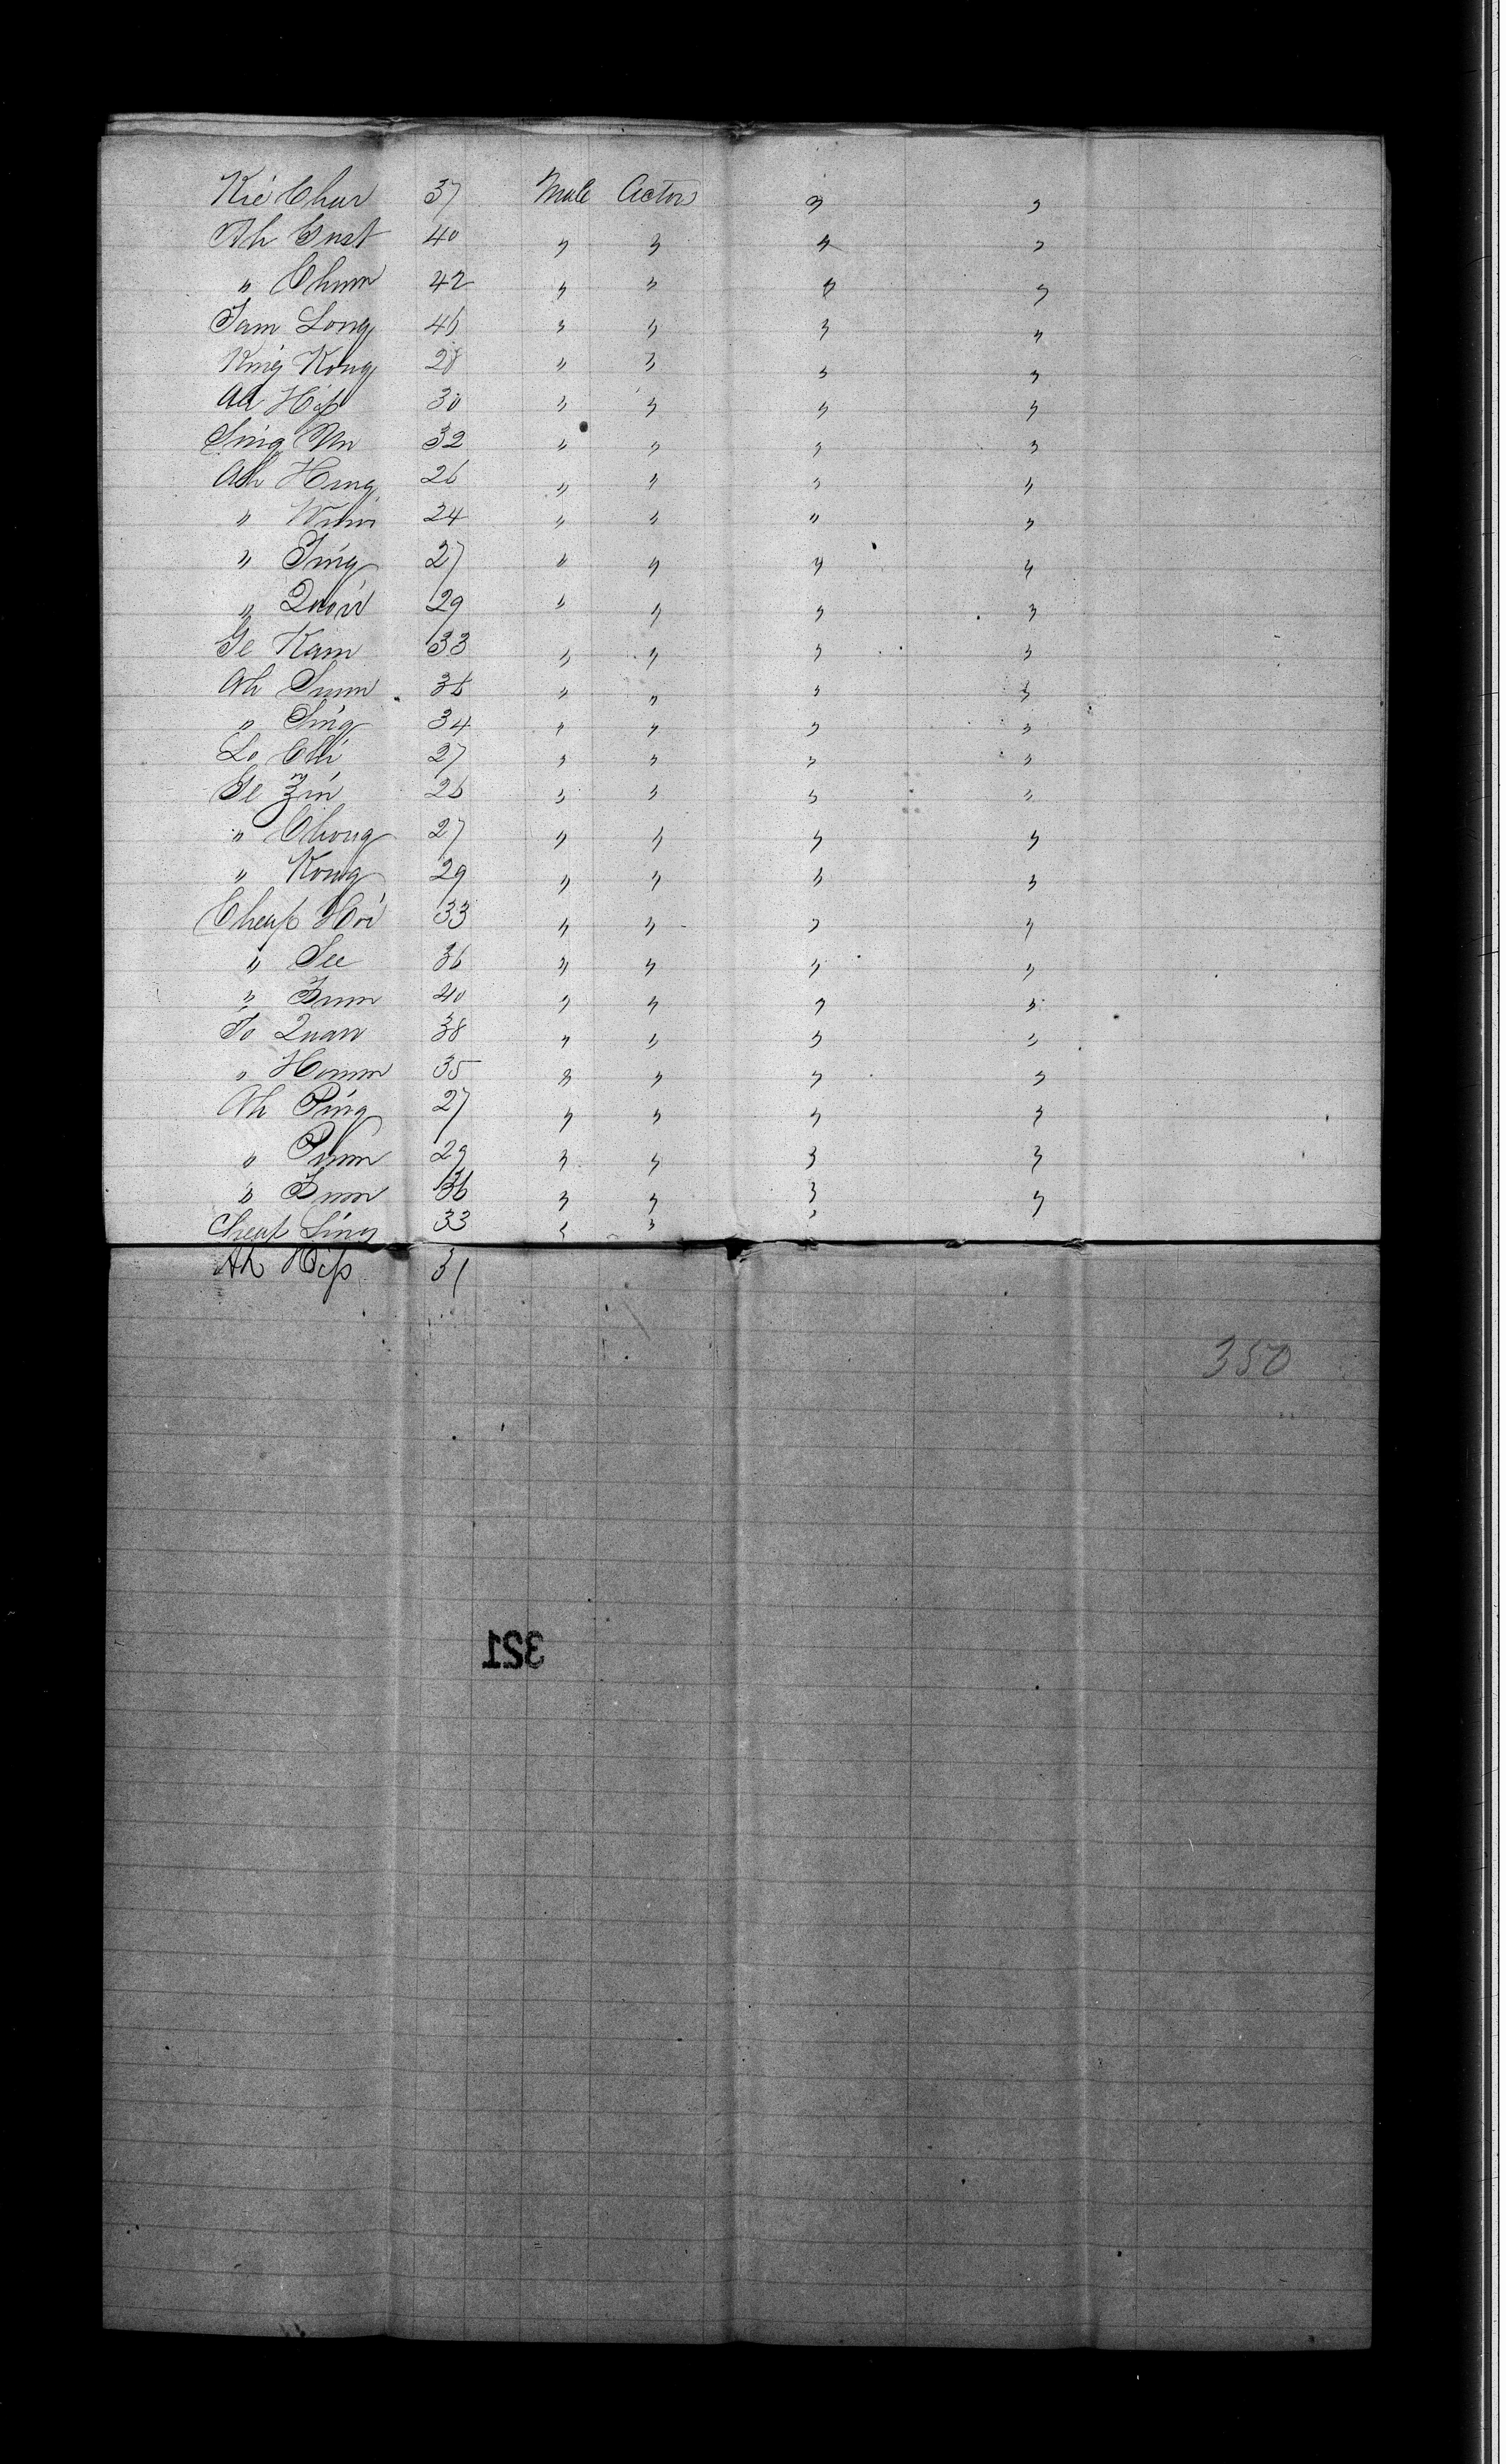 Kie Char 37 Male Actor " "
Ah Gust 40 " " " "
" Chum 42 " " " "
Tam Long 46 " " " "
King Kong 28 " " " "
Ah Hip 30 " " " "
Sing Un 32 " " " "
Ah Hing 26 " " " "
" 24 " " " "
" Ting 27 " " " "
" Quon 29 " " " "
Ge Kam 33 " " " "
Ah Sum 36 " " " "
" Sing 34 " " " "
Lo Chi 27 " " " "
Se 26 " " " "
" Chong 27 " " " "
" Kong 29 " " " "
Cheap Hoi 33 " " " "
" See 36 " " " "
" Bum 40 " " " "
To Quan 38 " " " "
" Homm 35 " " " "
Ah Ping 27 " " " "
" Pum 29 " " " "
" Bum 36 " " " "
Cheap Sing 33 " " "
Ah Hip 31
350
321